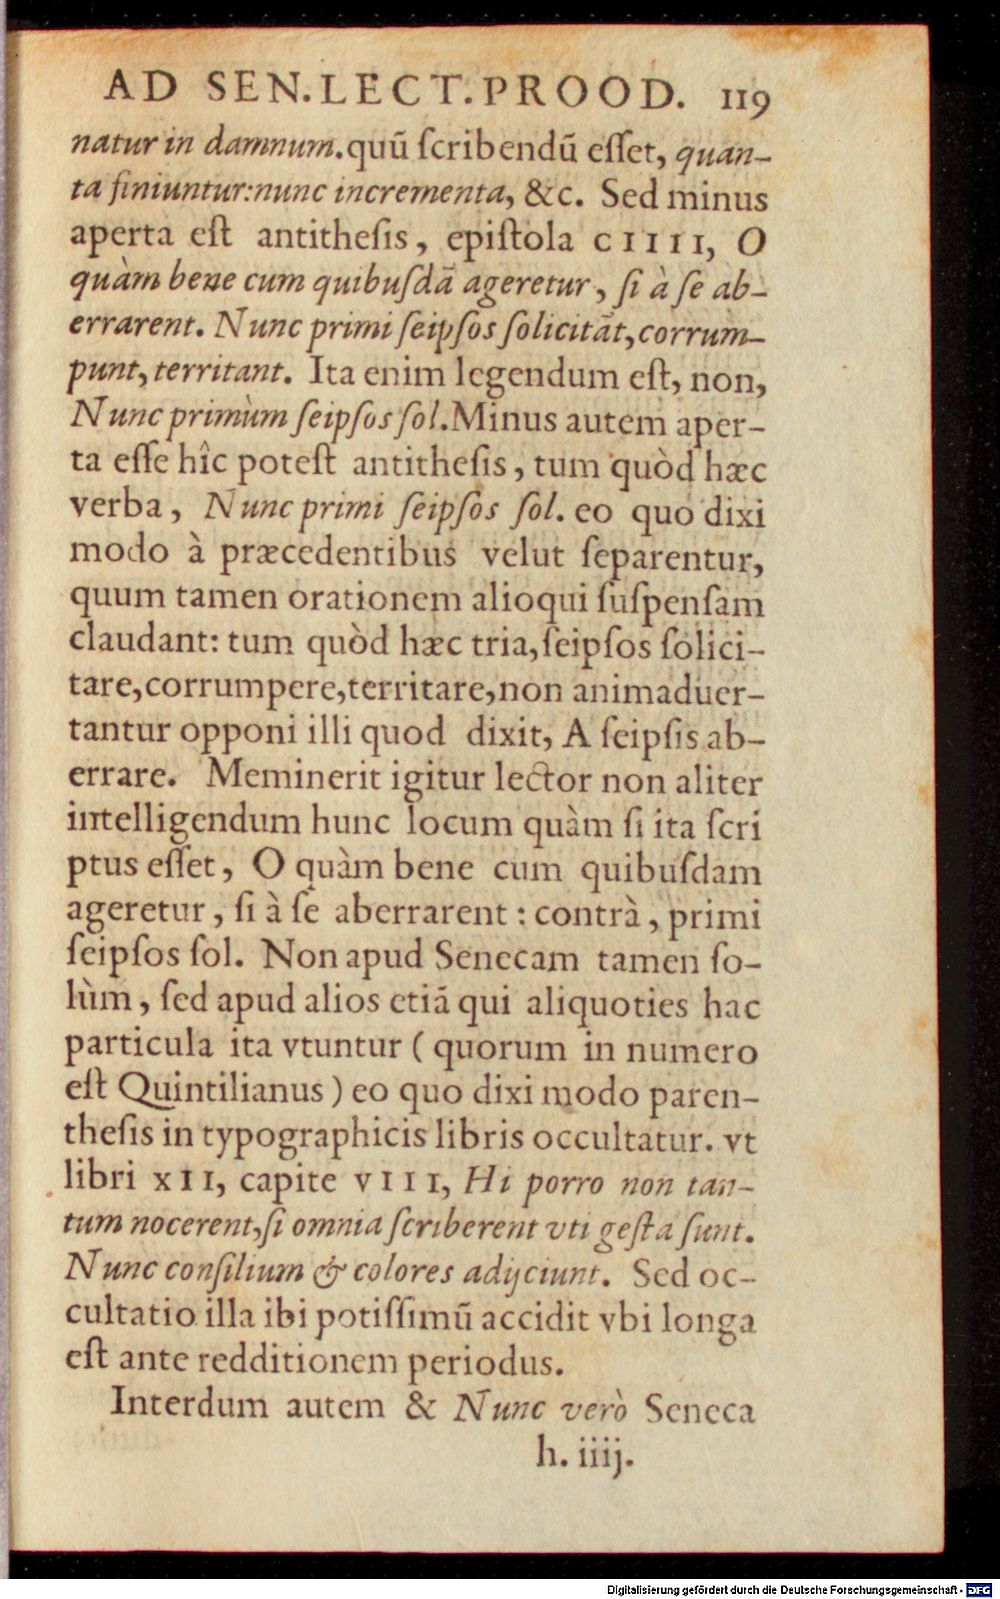 AD SEN.LECT.PROOD. 119
natur in damnum.quũ ſcribendũ eſſet, quan-
ta finiuntur:nunc incrementa, &c. Sed minus
aperta eſt antitheſis, epiſtola CIIII, O
quàm bene cum quibuſdã ageretur, ſi à ſe ab-
errarent. Nunc primi ſeipſos ſolicitãt, corrum-
punt, territant. Ita enim legendum eſt, non,
Nunc primùm ſeipſos ſol.Minus autem aper-
ta eſſe hîc poteſt antitheſis, tum quòd hæc
verba, Nunc primi ſeipſos ſol. eo quo dixi
modo à præcedentibus velut ſeparentur,
quum tamen orationem alioqui ſuſpenſam
claudant: tum quòd hæc tria, ſeipſos ſolici-
tare, corrumpere, territare, non animaduer-
tantur opponi illi quod dixit, A ſeipſis ab-
errare. Meminerit igitur lector non aliter
intelligendum hunc locum quàm ſi ita ſcri
ptus eſſet, O quàm bene cum quibuſdam
ageretur, ſi à ſe aberrarent : contrà, primi
ſeipſos ſol. Non apud Senecam tamen ſo-
lùm, ſed apud alios etiã qui aliquoties hac
particula ita vtuntur ( quorum in numero
eſt Quintilianus ) eo quo dixi modo paren-
theſis in typographicis libris occultatur. vt
libri XII, capite VIII, Hi porro non tan-
tum nocerent, ſi omnia ſcriberent vti geſta ſunt.
Nunc conſilium & colores adijciunt. Sed oc-
cultatio illa ibi potiſſimũ accidit vbi longa
eſt ante redditionem periodus.
Interdum autem & Nunc verò Seneca
h. iiij.
Digitalisierung gefördert durch die Deutsche Forschungsgemeinschaft - DFG